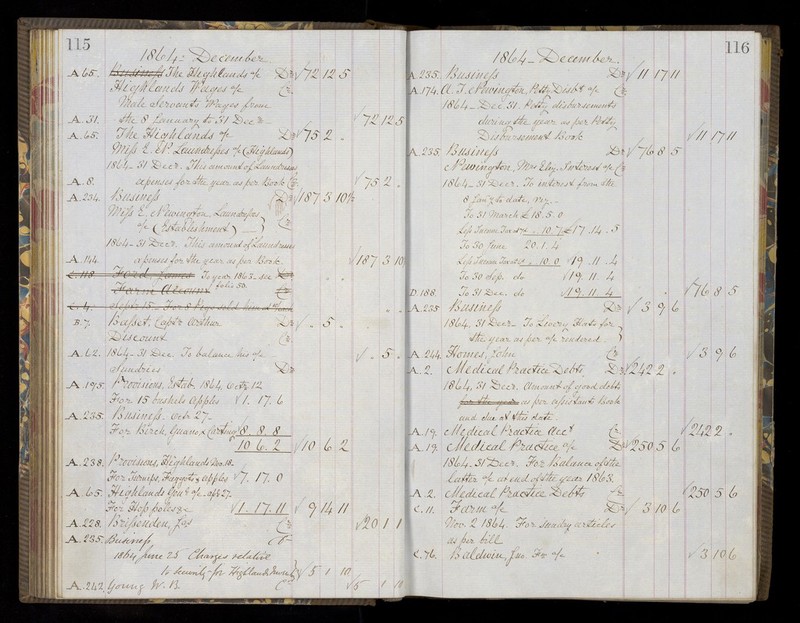 115
1864 - December
A.65. Business The Highlands a/c Dr √72 12 5
Highlands Wages a/c Cr
Male Servants Wages from
A.31. the 8 January to 31 Dec √72 12 5
A.65. The Highlands a/c Dr √75 2 .
Miss E. N. Laundresses a/c (Highlands)
1864 - 31 Decr. This amount of Laundresses
A.8. expenses for the year as per Book Cr √75 2 .
A.234. Business Dr √187 3 10½
Miss E. Newington, Laundresses
a/c (Establishment) Cr
1864 - 31 Decr. This amount of Laundresses
A.144. expenses for the year as per Book √187 3 10
C.118 To year 1863 - see Dr
Farm Account folio 30.
C.4.
B.7. Basset, Captn Arthur Dr √ . 5 .
Discount Cr
A.62. 1864 - 31 Dec To balance his a/c √ . 5 .
Sundries Dr
A.195. Provisions, Estab. 1864, Octr 12
For 15 bushels apples √1. 17. 6
A.235. Business. Octr 27 -
For Birch, Guano & Carting √8 8 8
10 6. 2 √10 6 2
A.238. Provisions, Highlands Nov. 18.
For Turnips, Faggots & apples √7. 17. 0
A.65. Highlands
For Hop poles &c √1. 17. 11 √9 14 11
A.228. Brissenden, Jas Cr √20 1 1
A.235. Business
1864 June 23 Charges relative
to security for Highlands √5 1 10
A.242. Young W. B. Cr √5 1 10
116
1864 - December.
A.235. Business Dr √11 17 11
A.174. A. T. Newington, Petty Disbts a/c Cr
1864 - Dec 31. Petty disbursements
during the year as per Petty
Disbursement Book √11 17 11
A.235. Business Dr √76 8 5
Newington, Mrs Eliz. Interest a/c Cr
1864 - 31 Decr. To interest from the
8 Jany to date, viz. -
To 31 March £18. 5. 0
Less Income Tax 10. 7 £17. 14. 5
To 30 June 20. 1. 4
Less Income Tax 10. 0 √19. 11. 4
To 30 Sep. do √19. 11. 4
D.188. To 31 Dec. do √19. 11. 4 √76 8 5
A.235 Business Dr √3 9 6
1864. 31 Decr - To Livery Hats for
the year as per a/c rendered
A.244. Homes, John Cr √3 9 6
A.2. Medical Practice Debts, Dr √242 2 .
1864, 31 Decr. Amount of good debts
for the year as per assistants Book
and due at this date
A.19. Medical Practice Acct Cr √242 2 .
A.19. Medical Practice a/c Dr √250 5 6
1864. 31 Decr. For Balance of the
latter a/c at end of the year 1863.
A.2. Medical Practice Debts Cr √250 5 6
C.11. Farm a/c Dr √3 10 6
Nov. 2 1864. For sundry articles
as per bill
C.76. Baldwin, Jno. a/c √3 10 6